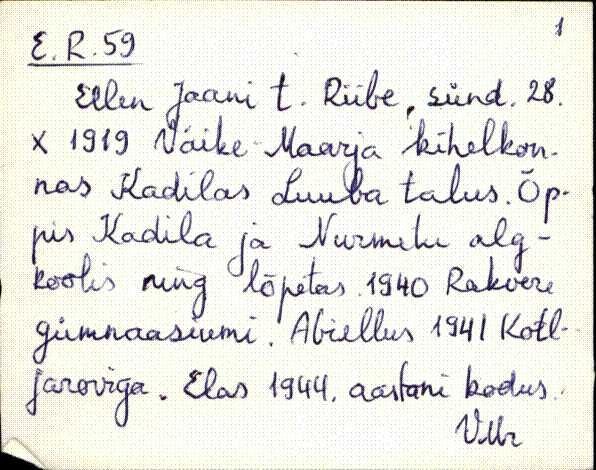 1
E.R.59
Ellen Jaani t. Riibe, sünd. 28.
X 1919 Väike-Maarja kihelkon-
nas Kadilas Luuba talus. Õp-
pis Kadila ja Nurmetu alg-
koolis ning lõpetas 1940 Rakvere
gümnaasiumi. Abiellus 1941 Kotl-
jaroviga. Elas 1944. aastani kodus.